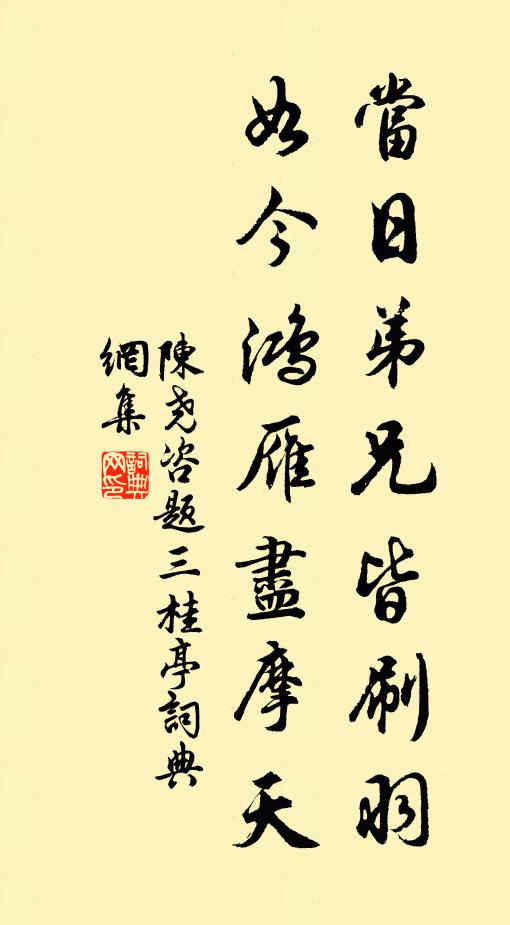 當日弟兄皆刷羽
如今鴻雁盡摩天
陳堯咨題三桂亭詞典
網集
詞典網印